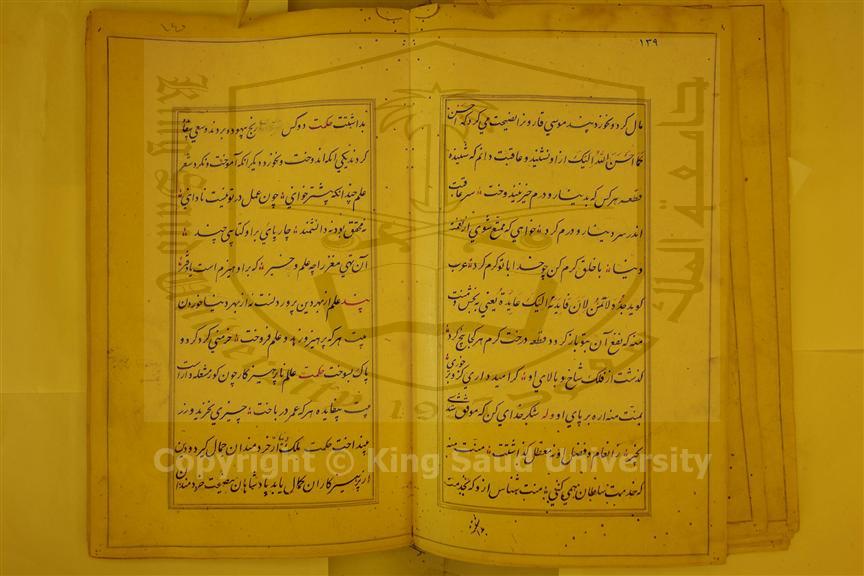 ۱۳۹
مال کرد و نخورد پند موسی قارون را نصیحت می کرد که احسن
کما احسن الله الیک او نشنید و عاقبت دانم که شنیده
قطعه هر کس که بدینار و درم خیر نیندوخت سر عاقبت
اندر سر دینار و درم کرد خواهی که ممتع شوی از نعمت
دنیا با خلق کرم کن چو خدا با تو کرم کرد عرب
کوید جد و لا تمنن لان فایدته الیک عایدة یعنی به بخش و منت
منه که نفع آن بتو باز کردد قطعه درخت کرم هر کجا بیخ کرد
کذشت از فلک شاخ و بالای او کر امید داری کزو بر خوری
بمنت منه اره بر پای او وله شکر خدای کن که موفق شدی
بخیر ز انعام و فضل او نه معطل کذاشتت منت منه
که خدمت سلطان همی کنی منت شناس ازو که بخدمت
بداشتت حکمت دو کس رنج بیهوده بردند و سعی بیفایده
کردند یکی انکه اندوخت و نخورد دیکر انکه آموخت و نکرد شعر
علم چندانکه بیشتر خوانی چون عمل در تو نیست نادانی
نه محقق بود نه دانشمند چارپای برو کتابی چند
آن تهی مغز را چه علم و خبر که برو هیزم است یا دفتر
پند علم از بهر دین پروردنست نه از بهر دنیا خوردن
بیت هر که پرهیز و زهد و علم فروخت خرمنی کرد کرد و
پاک بسوخت حکمت عالم ناپرهیزکار چون کور مشعله دار است
بیت بیفایده هر که عمر در باخت چیزی نخرید و زر
بینداخت حکمت ملک از خردمندان جمال کیرد و دین
از پرهیزکاران کمال یابد پادشاهان بنصیحت خردمندان
Copyright © King Saud University
جامعة الملك سعود
King Saud University
1957